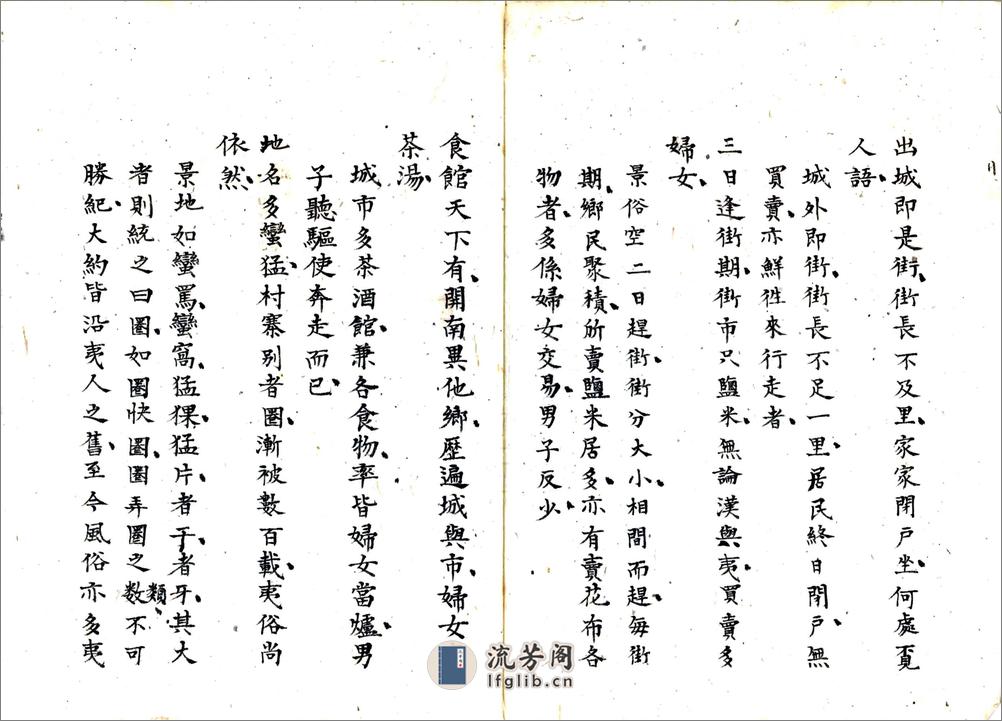 出城即是街街長不及里家家閉戸坐何處覓
人語
城外即街街長不足一里居民終日閉戸無
買賣亦鮮徃來行走者
三日逢街期街市只鹽米無論漢與夷買賣多
婦女
景俗空二日趕街街分大小相間而趕每街
期鄉民聚積所賣鹽米居多亦有賣花布各
物者多係婦女交易男子反少
食館天下有開南異他鄉歷遍城與市婦女
茶湯
城市多茶酒館兼各食物率皆婦女當爐男
子聽驅使奔走而已
地名多蠻猛村寨別者圈漸被數百載夷俗尚
依然
景地如蠻罵蠻窩猛猓猛片者于者牙其大
者則統之曰圈如圈快圈圈弄圈之類数不可
勝紀大約皆沿夷人之舊至今風俗亦多夷
流芳阁
lfglib.cn